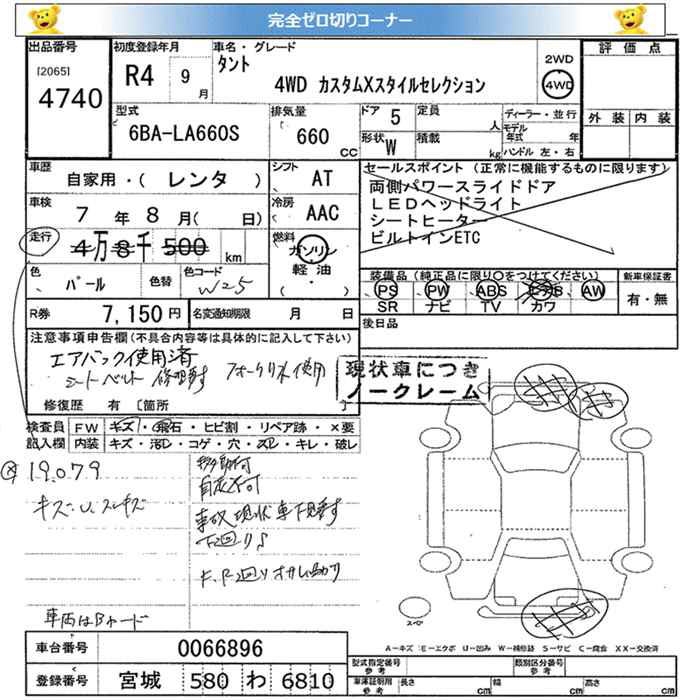 完全ゼロ切りコーナー
出品番号
[2065]
4740
初度登録年月
R4 9 月
車名・グレード
タント
4WD カスタムXスタイルセレクション
2WD
4WD
評価点
外装 内装
型式
6BA-LA660S
排気量
660 CC
ドア 5
形状 W
定員 人
積載 kg
ディーラー・並行
モデル年式 年
ハンドル 左・右
車歴
自家用・( レンタ )
シフト AT
車検
7 年 8 月( 日)
冷房 AAC
走行
4万8千500 km
燃料
ガソリン
軽油・
( )
セールスポイント (正常に機能するものに限ります)
両側パワースライドドア
LEDヘッドライト
シートヒーター
ビルトインETC
色
パール
色替
色コード
W25
装備品(純正品に限り○をつけてください)
PS PW ABS AW
SR ナビ TV カワ
新車保証書
有・無
R券
7,150円
名変通知期限 月 日
後日品
注意事項申告欄(不具合内容等は具体的に記入して下さい)
エアバック使用済
シートベルト 使用
修復歴 有 [箇所 ]
現状車につき
ノークレーム
検査員記入欄
FW キズ・飛石・ヒビ割・リペア跡・×要
内装 キズ・汚レ・コゲ・穴・スレ・キレ・破レ
19.079
移動可
自走不可
キズ・U.スレキズ
事故現状車
下廻りS
車両はBヤード
スペア
A-キズ E-エクボ U-凹み W-補修跡 S-サビ C-腐食 XX-交換済
車台番号
0066896
登録番号
宮城 580 わ 6810
型式指定番号
参考
類別区分番号
参考
車庫証明用
参考
長さ cm
幅 cm
高さ cm